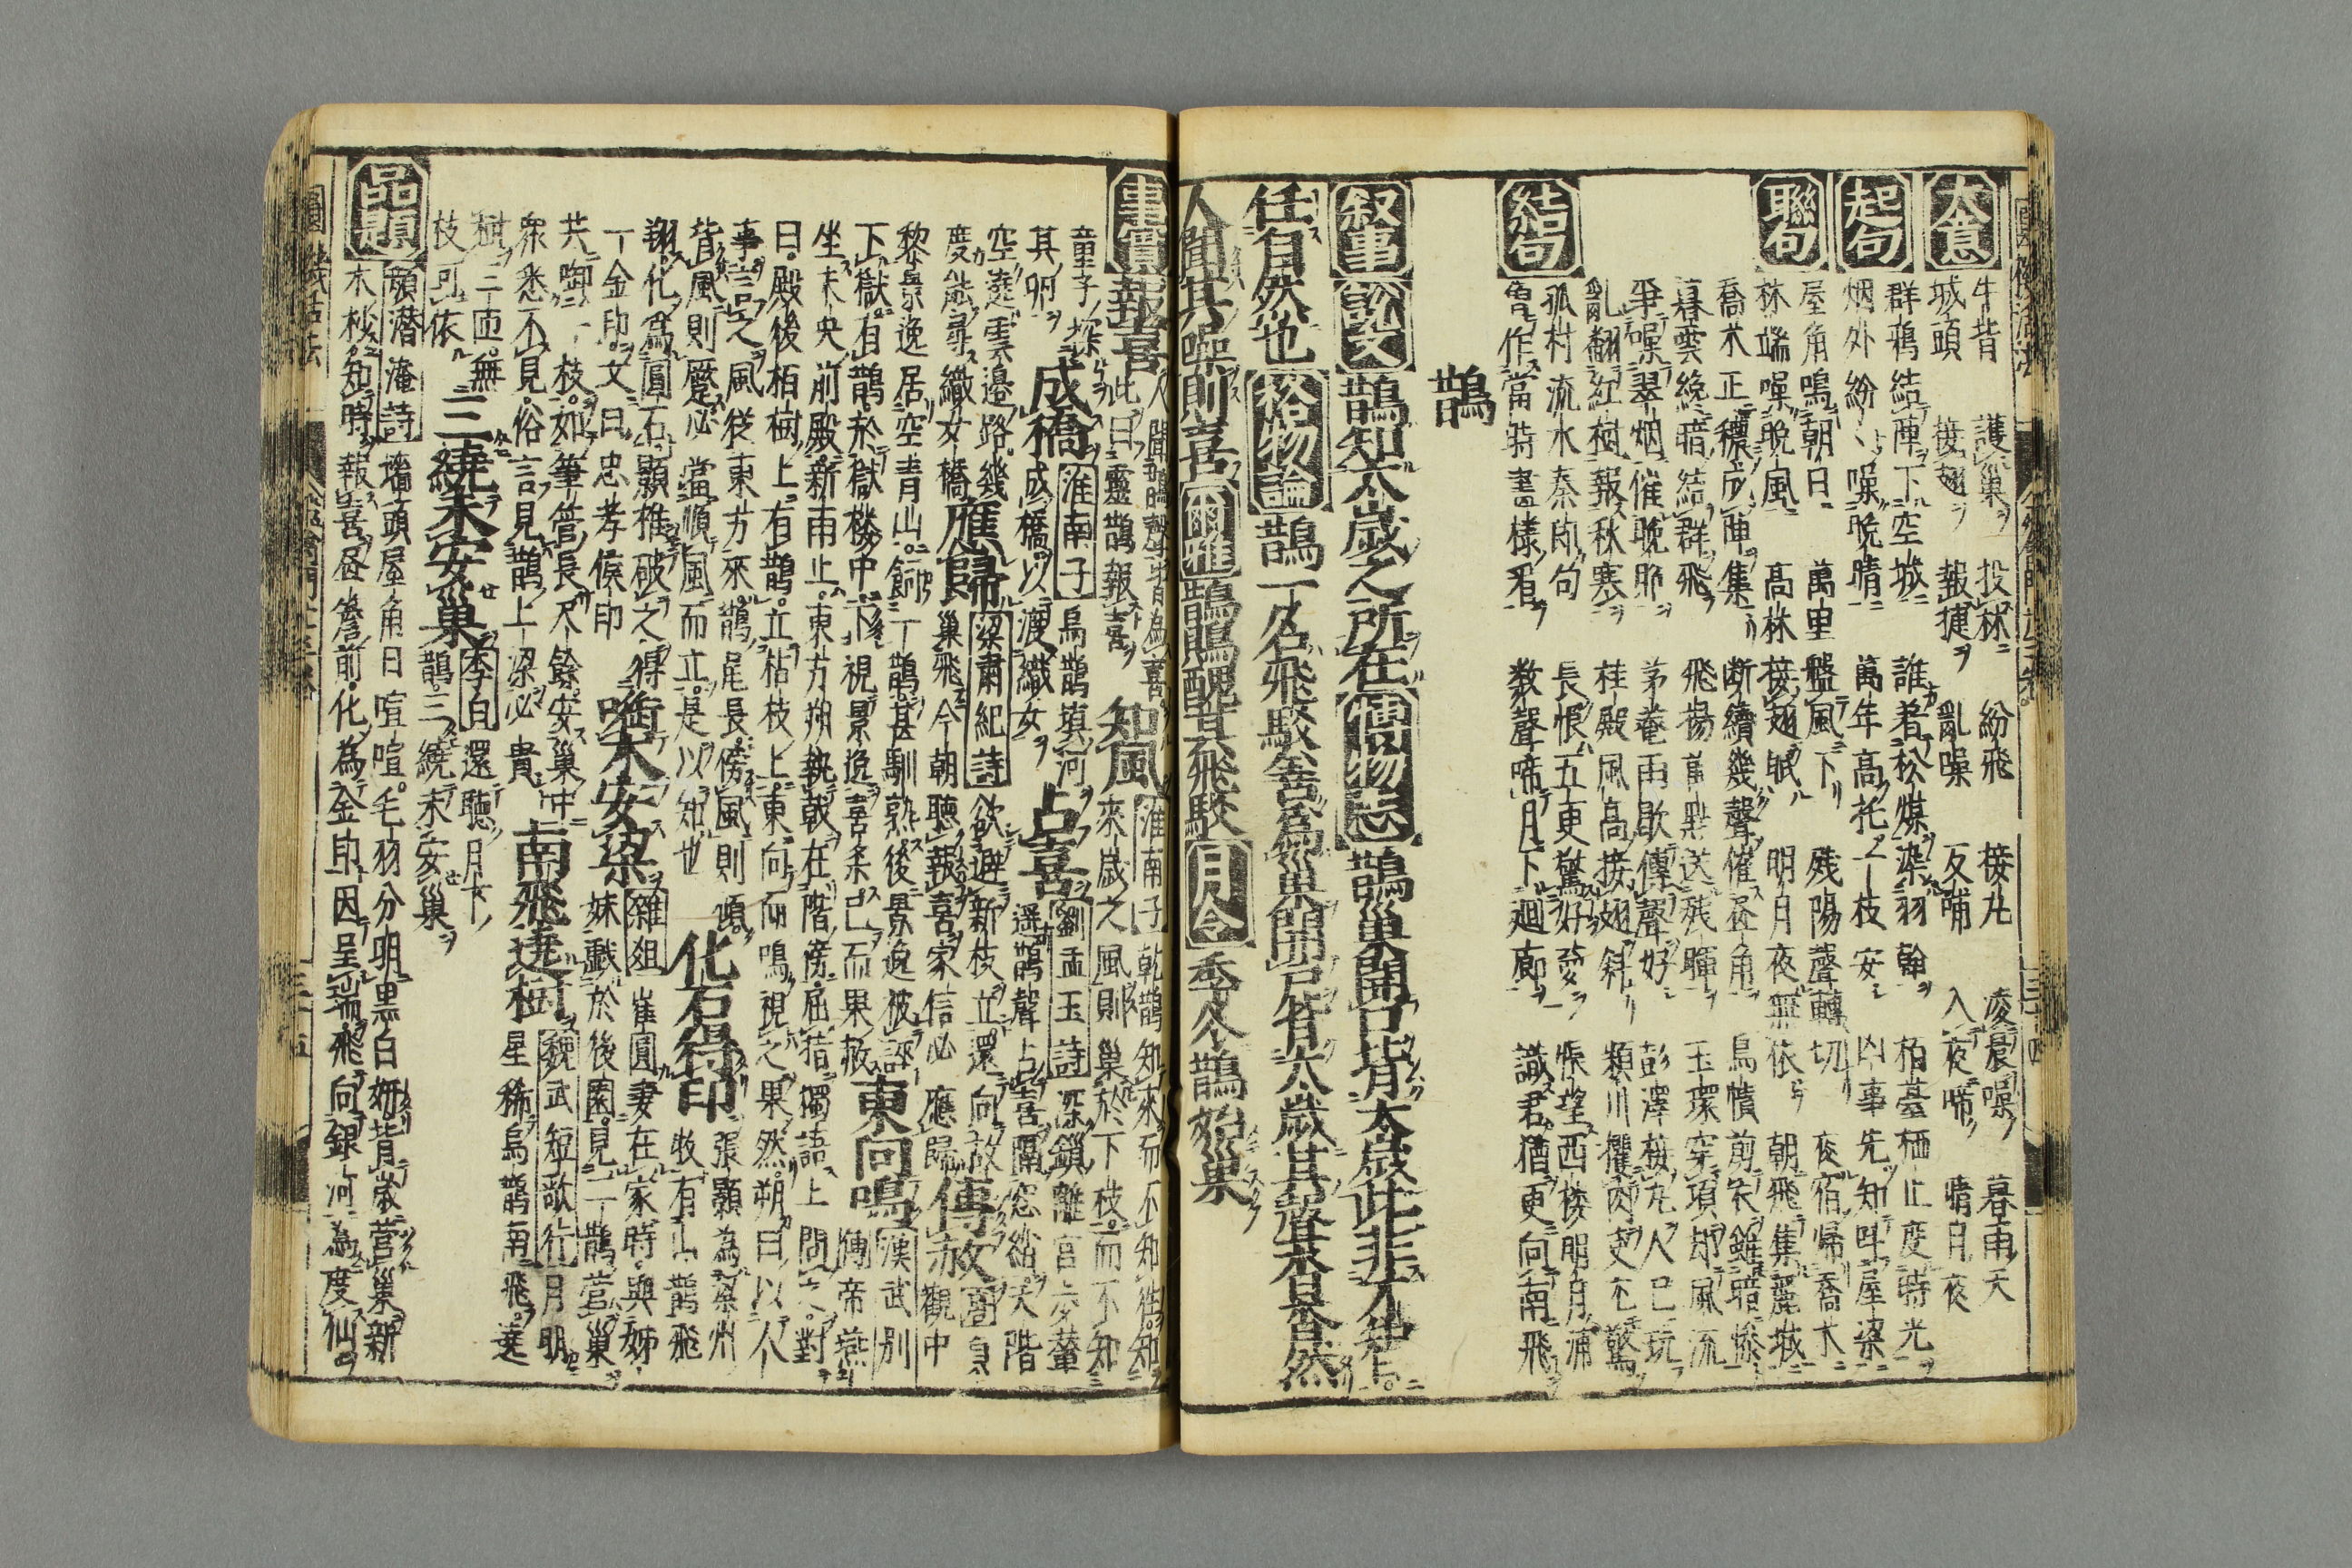 大意
牛背 護巢 投林 紛飛 接丸 凌晨噪 暮雨天
城頭 接翅 報捷 亂噪 反哺 入夜啼 晴月夜
起句
群鴉結陣下空城 誰着松煤染羽翰 栢臺栖止度時光
烟外紛〻噪晚晴 萬年高托一枝安 凶事先知叫屋梁
聯句
屋角鳴朝日 萬里盤風下 残陽聲轉切 夜宿歸喬木
林端噪晚風 高林接翅眠 明月夜無依 朝飛集麗城
喬木正穠成陣集 断續幾聲催昼角 烏幘剪來雖暗慘
暮雲纔暗結群飛 飛揚萬點送残暉 玉環穿項却風流
爭噪翠烟催晚耶 茅菴雨歇傳聲好 彭澤接丸人已玩
亂翻紅樹報秋寒 桂殿風高接翅斜 頴川攫肉吏不驚
結句
孤村流水秦郎句 長恨五更驚好夢 悵望西楼明月浦
魯作當時書様看 数聲啼月下廻廊 識君猶更向南飛
鵲
叙事 說文 鵲知太歲之所在 博物志 鵲巢開口背太歲此非才知
任自然也 格物論 鵲一名飛駁善為巢開戶背太歲其聲唶唶然
人聞其噪則喜 爾雅 鵲鵙醜其飛駁 月令 季冬鵲始巢
事實 報喜 人聞鵲聲皆為喜 此曰靈鵲報喜 知風 淮南子 乾鵲知來而不知往知
來歲之風則巢於下枝而不知
童子探
其卵 成橋 淮南子 烏鵲填河
成橋以渡織女 占喜 劉孟玉詩 深鎖離宮歩輦
遥鵲聲占喜隔窓欲天階
空遶雲邊路幾
度能尋織女橋 應歸 梁肅紀詩 欲避新枝立還向故
巢飛今朝聽報喜家信必應歸 傳赦
黎景逸居空青山飼一鵲甚馴熟後景逸被誣
下獄有鵲於獄楼中下視景逸喜希已而果赦 東向鳴 漢武別
傳帝燕
坐未央前殿新雨止東方朔執戟在階傍屈指獨語上問之對
曰殿後栢樹上有鵲立枯枝上東向而鳴視之果然朔曰以人
事言之風從東方來鵲尾長傍風則傾
背風則蹷必當順風而立是以知也 化石得印 張顥為梁州
牧有山鵲飛
翔化為圓石顥椎破之得
一金印文曰忠孝侯印 啣木安梁 雜俎 崔圓妻在家時與姊
妹戯於後園見一鵲營巢
共啣一枝如筆管長尺餘安巢中
衆悉不見俗言見鵲上梁必貴 南飛遶樹 魏武短歌行 月明
星稀烏鵲南飛遶
樹三匝無
枝可依 三繞未安巢 李白 還聽月下
鵲三繞未安巢
品題 顏潜庵詩 墻頭屋角日喧喧毛羽分明黒白姸背歲營巢新
木杪知時報喜昼簷前化為金印因呈瑞飛向銀河為度仙